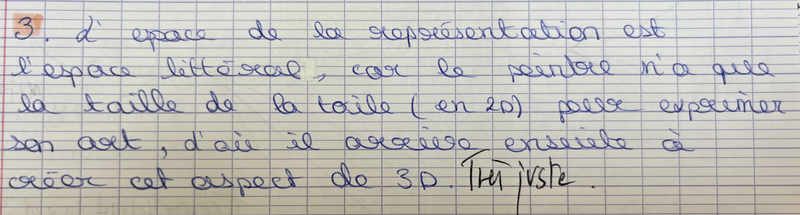 3. L'espace de la représentation est
l'espace littéral, car le peintre n'a que
la taille de la toile (en 2D) pour exprimer
son art, d'où il arrive ensuite à
créer cet aspect de 3D. Très juste.